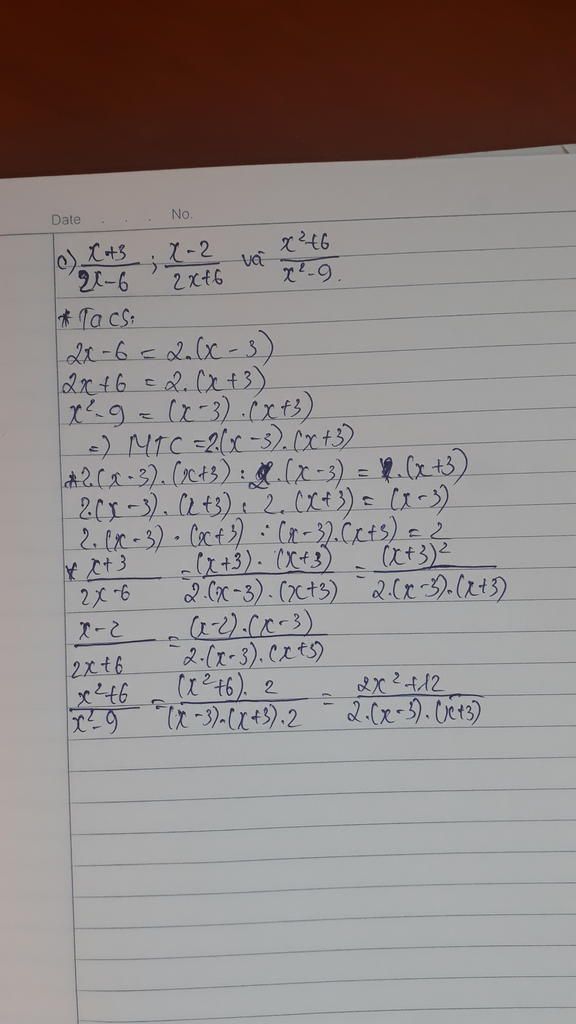 Date . . . No.
c) x+3/2x-6 ; x-2/2x+6 và x²+6/x²-9.
* Ta có:
2x-6 = 2.(x-3)
2x+6 = 2.(x+3)
x²-9 = (x-3).(x+3)
=) MTC = 2.(x-3).(x+3)
* 2.(x-3).(x+3) : 2.(x-3) = (x+3)
2.(x-3).(x+3) : 2.(x+3) = (x-3)
2.(x-3).(x+3) : (x-3).(x+3) = 2
* x+3/2x-6 = (x+3).(x+3)/2.(x-3).(x+3) = (x+3)²/2.(x-3).(x+3)
x-2/2x+6 = (x-2).(x-3)/2.(x-3).(x+3)
x²+6/x²-9 = (x²+6).2/(x-3).(x+3).2 = 2x²+12/2.(x-3).(x+3)